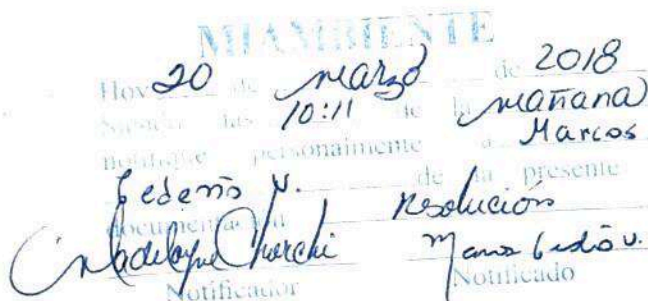 MIAMBIENTE
Hoy 20 de marzo de 2018
Siendo las 10:11 de la mañana
notifique personalmente a Marcos
Cedeño V. de la presente
documentación Resolución
Marcos Cedeño V.
Notificador Notificado